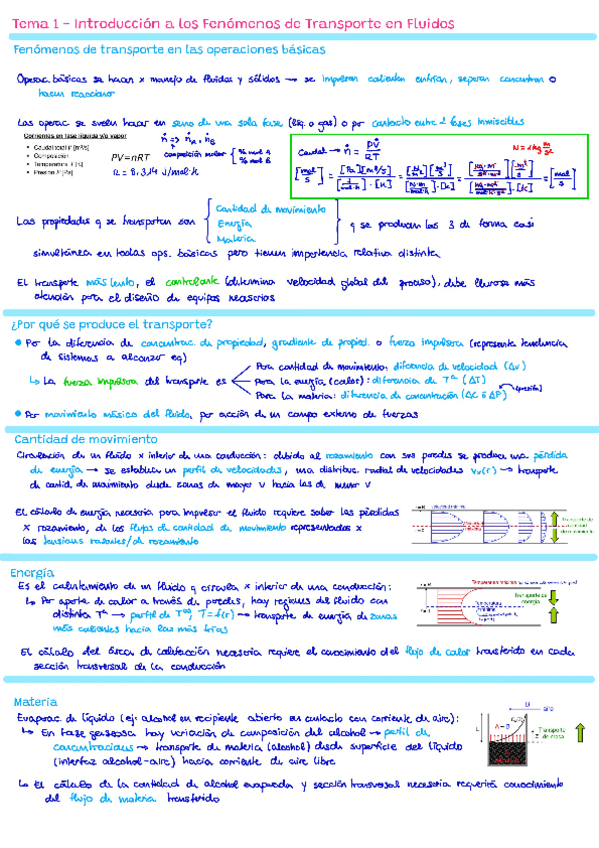 Tema 1 - Introducción a los Fenómenos de Transporte en Fluidos
Fenómenos de transporte en las operaciones básicas
Operac. básicas se hacen x manejo de fluidos y sólidos → se impulsan calientan enfrían, separan concentran o
hacen reaccionar
Las operac se suelen hacer en seno de una sola fase (líq. o gas) o por contacto entre 2 fases inmiscibles
Corrientes en fase líquida y/o vapor
• Composición
PV = nRT
R = 8,314 J/mol·K
composición molar
% mol A
% mol B
Caudal → ṅ = PV̇ / RT
N = 1 kg m/s²
Las propiedades q se transportan son
Cantidad de movimiento
Energía
Materia
q se producen las 3 de forma casi
simultánea en todas ops. básicas pero tienen importancia relativa distinta
El transporte más lento, el controlante (determina velocidad global del proceso), debe llevarse más
atención para el diseño de equipos necesarios
¿Por qué se produce el transporte?
• Por la diferencia de concentrac. de propiedad, gradiente de propied. o fuerza impulsora (representa tendencia
de sistemas a alcanzar eq)
↳ La fuerza impulsora del transporte es
Para cantidad de movimiento: diferencia de velocidad (Δv)
para la energía (calor): diferencia de Tª (ΔT)
Para la materia: diferencia de concentración (ΔC ó ΔP)
(presión)
• Por movimiento másico del fluido, por acción de un campo externo de fuerzas
Cantidad de movimiento
Circulación de un fluido x interior de una conducción: debido al rozamiento con sus paredes se produce una pérdida
de energía → se establece un perfil de velocidades, una distribuc. radial de velocidades vₓ(r) → transporte
de cantid. de movimiento desde zonas de mayor v hacia las de menor v
El cálculo de energía necesaria para impulsar el fluido requiere saber las pérdidas
x rozamiento, de los flujos de cantidad de movimiento representados x
las tensiones rasantes/de rozamiento
Transporte de
cantidad
de movimiento
Energía
Es el calentamiento de un fluido q circula x interior de una conducción:
↳ Por aporte de calor a través de paredes, hay regiones del fluido con
distinta Tª → perfil de Tªs, T = f(r) → transporte de energía de zonas
más calientes hacia las más frías
El cálculo del área de calefacción necesaria requiere el conocimiento del flujo de calor transferido en cada
sección transversal de la conducción
Transporte de
energía
Materia
Evaporac. de líquido (ej: alcohol en recipiente abierto en contacto con corriente de aire):
↳ En fase gaseosa hay variación de composición del alcohol → perfil de
concentraciones → transporte de materia (alcohol) desde superficie del líquido
(interfaz alcohol-aire) hacia corriente de aire libre
↳ El cálculo de la cantidad de alcohol evaporada y sección transversal necesaria requerirá conocimiento
del flujo de materia transferido
B
aire
A - B
Transporte
de masa